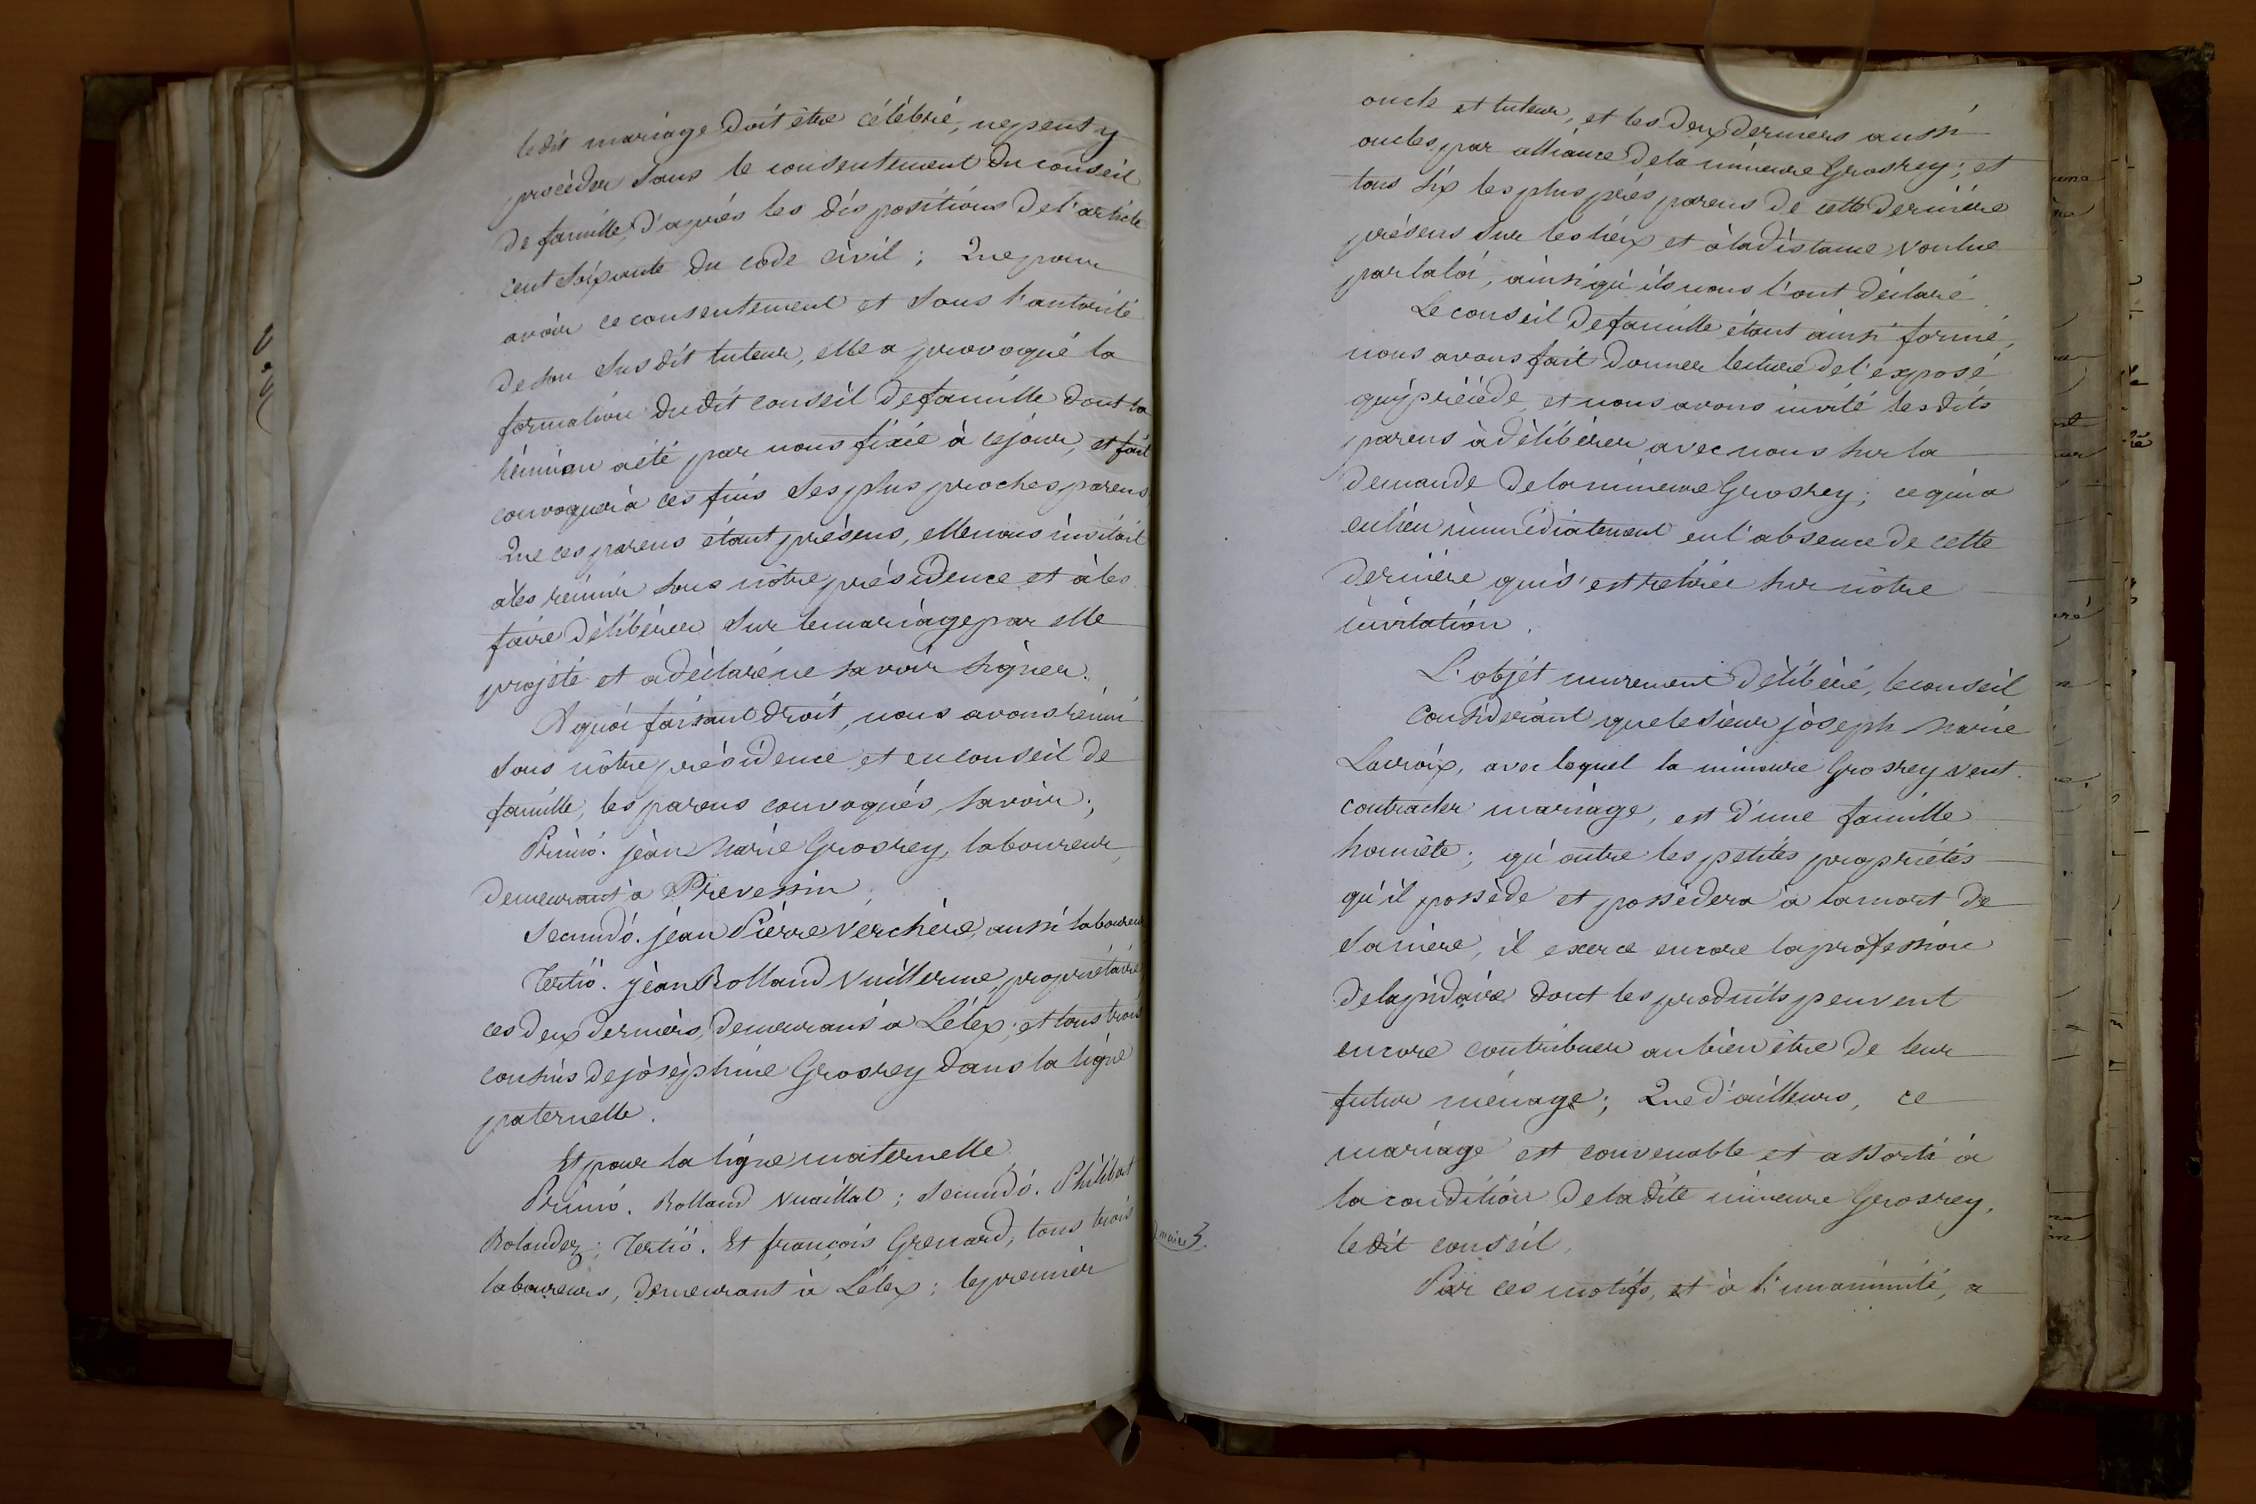 ledit mariage doit être célébré, ne peut y
procéder sans le consentement du conseil
de famille, d'après les dispositions de l'article
cent soixante du code civil ; Que pour
avoir ce consentement et sous l'autorité
de son susdit tuteur, elle a provoqué la
formation dudit conseil de famille dont la
réunion a été par nous fixée à ce jour, et fait
convoquer à ces fins ses plus proches parens,
Que ces parens étant présens, elle nous invitait
à les réunir sous nôtre présidence et à les
faire délibérer sur le mariage par elle
projété et a déclaré ne savoir signer.
A quoi faisant droit, nous avons réuni
sous nôtre présidence et en conseil de
famille, les parens convoqués, savoir ;
Primò. jean Marie Grosrey, laboureur,
demeurant à Prevessin ;
Secundò. jean Pierre Verchère, aussi laboureur
Tertiò. jean Rolland Vuillerme, propriétaire,
ces deux derniers, demeurans à Lélex ; et tous trois
cousins de joséphine Grosrey dans la ligne
paternelle.
Et pour la ligne maternelle
Primò. Rolland Nuaillat ; Secundò. Philibert
Rolandez ; Tertiò. Et françois Grenard, tous trois
laboureurs, demeurant à Lélex ; le premier
oncle et tuteur, et les deux derniers aussi
oncles par alliance de la mineure Grosrey ; et
tous six les plus près parens de cette dernière
présens sur les lieux et à la distance voulue
par la loi, ainsi qu'ils nous l'ont déclaré.
Le conseil de famille étant ainsi formé,
nous avons fait donner lecture de l'exposé
qui précède et nous avons invité lesdits
parens à délibérer avec nous sur la
demande de la mineure Grosrey ; ce qui a
eu lieu immédiatement en l'absence de cette
dernière qui s'est retirée sur nôtre
invitation.
L'objet murement délibéré, le conseil
Considerant que le sieur joseph Marie
Lacroix, avec lequel la mineure Grosrey veut
contracter mariage, est d'une famille
honnête ; qu'outre les petites propriétés
qu'il possède et possédera à la mort de
sa mère, il exerce encore la profession
de lapidaire dont les produits peuvent
encore contribuer au bien être de leur
futur ménage ; Que d'ailleurs, ce
mariage est convenable et assorti à
la condition de ladite mineure Grosrey,
ledit conseil,
Par ces motifs, et à l'unanimité, a